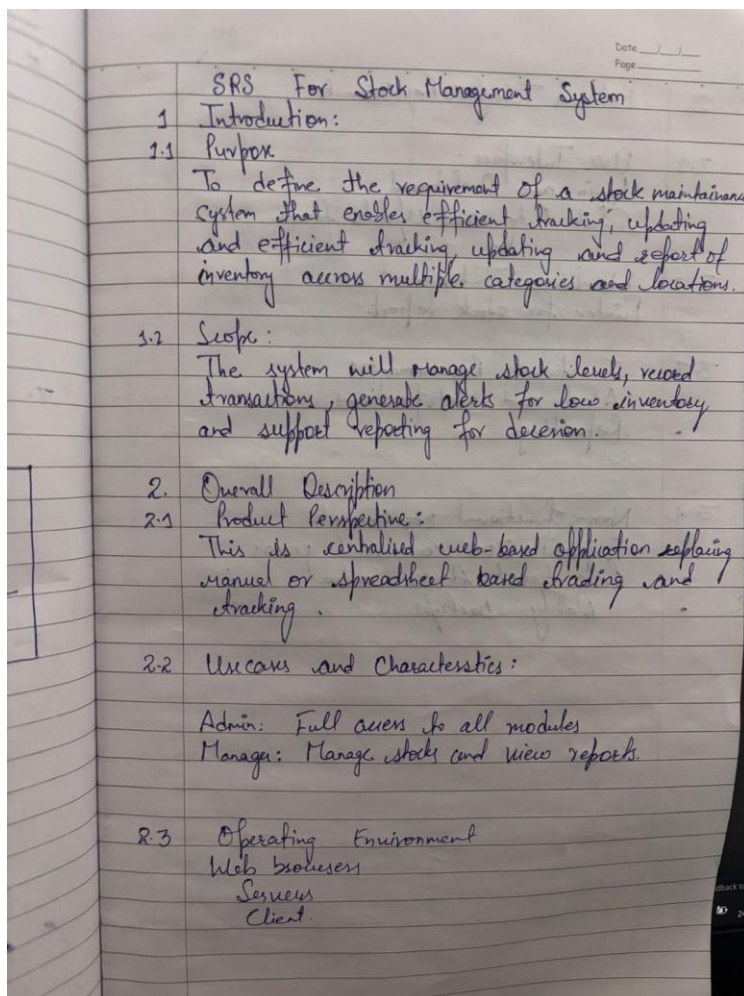 Date __/__/__
Page ______
SRS For Stock Management System
1 Introduction:
1.1 Purpose
To define the requirement of a stock maintainance
system that enables efficient tracking, updating
and efficient tracking, updating and report of
inventory accross multiple categories and locations.
1.2 Scope:
The system will manage stock levels, record
transactions, generate alerts for low inventory
and support reporting for decesion.
2. Overall Description
2.1 Product Perspective:
This is centralised web-based application replacing
manual or spreadsheet based trading and
tracking.
2.2 Usecases and Characterstics:
Admin: Full access to all modules
Manager: Manage stocks and view reports.
2.3 Operating Environment
Web browsers
Servers
Client.